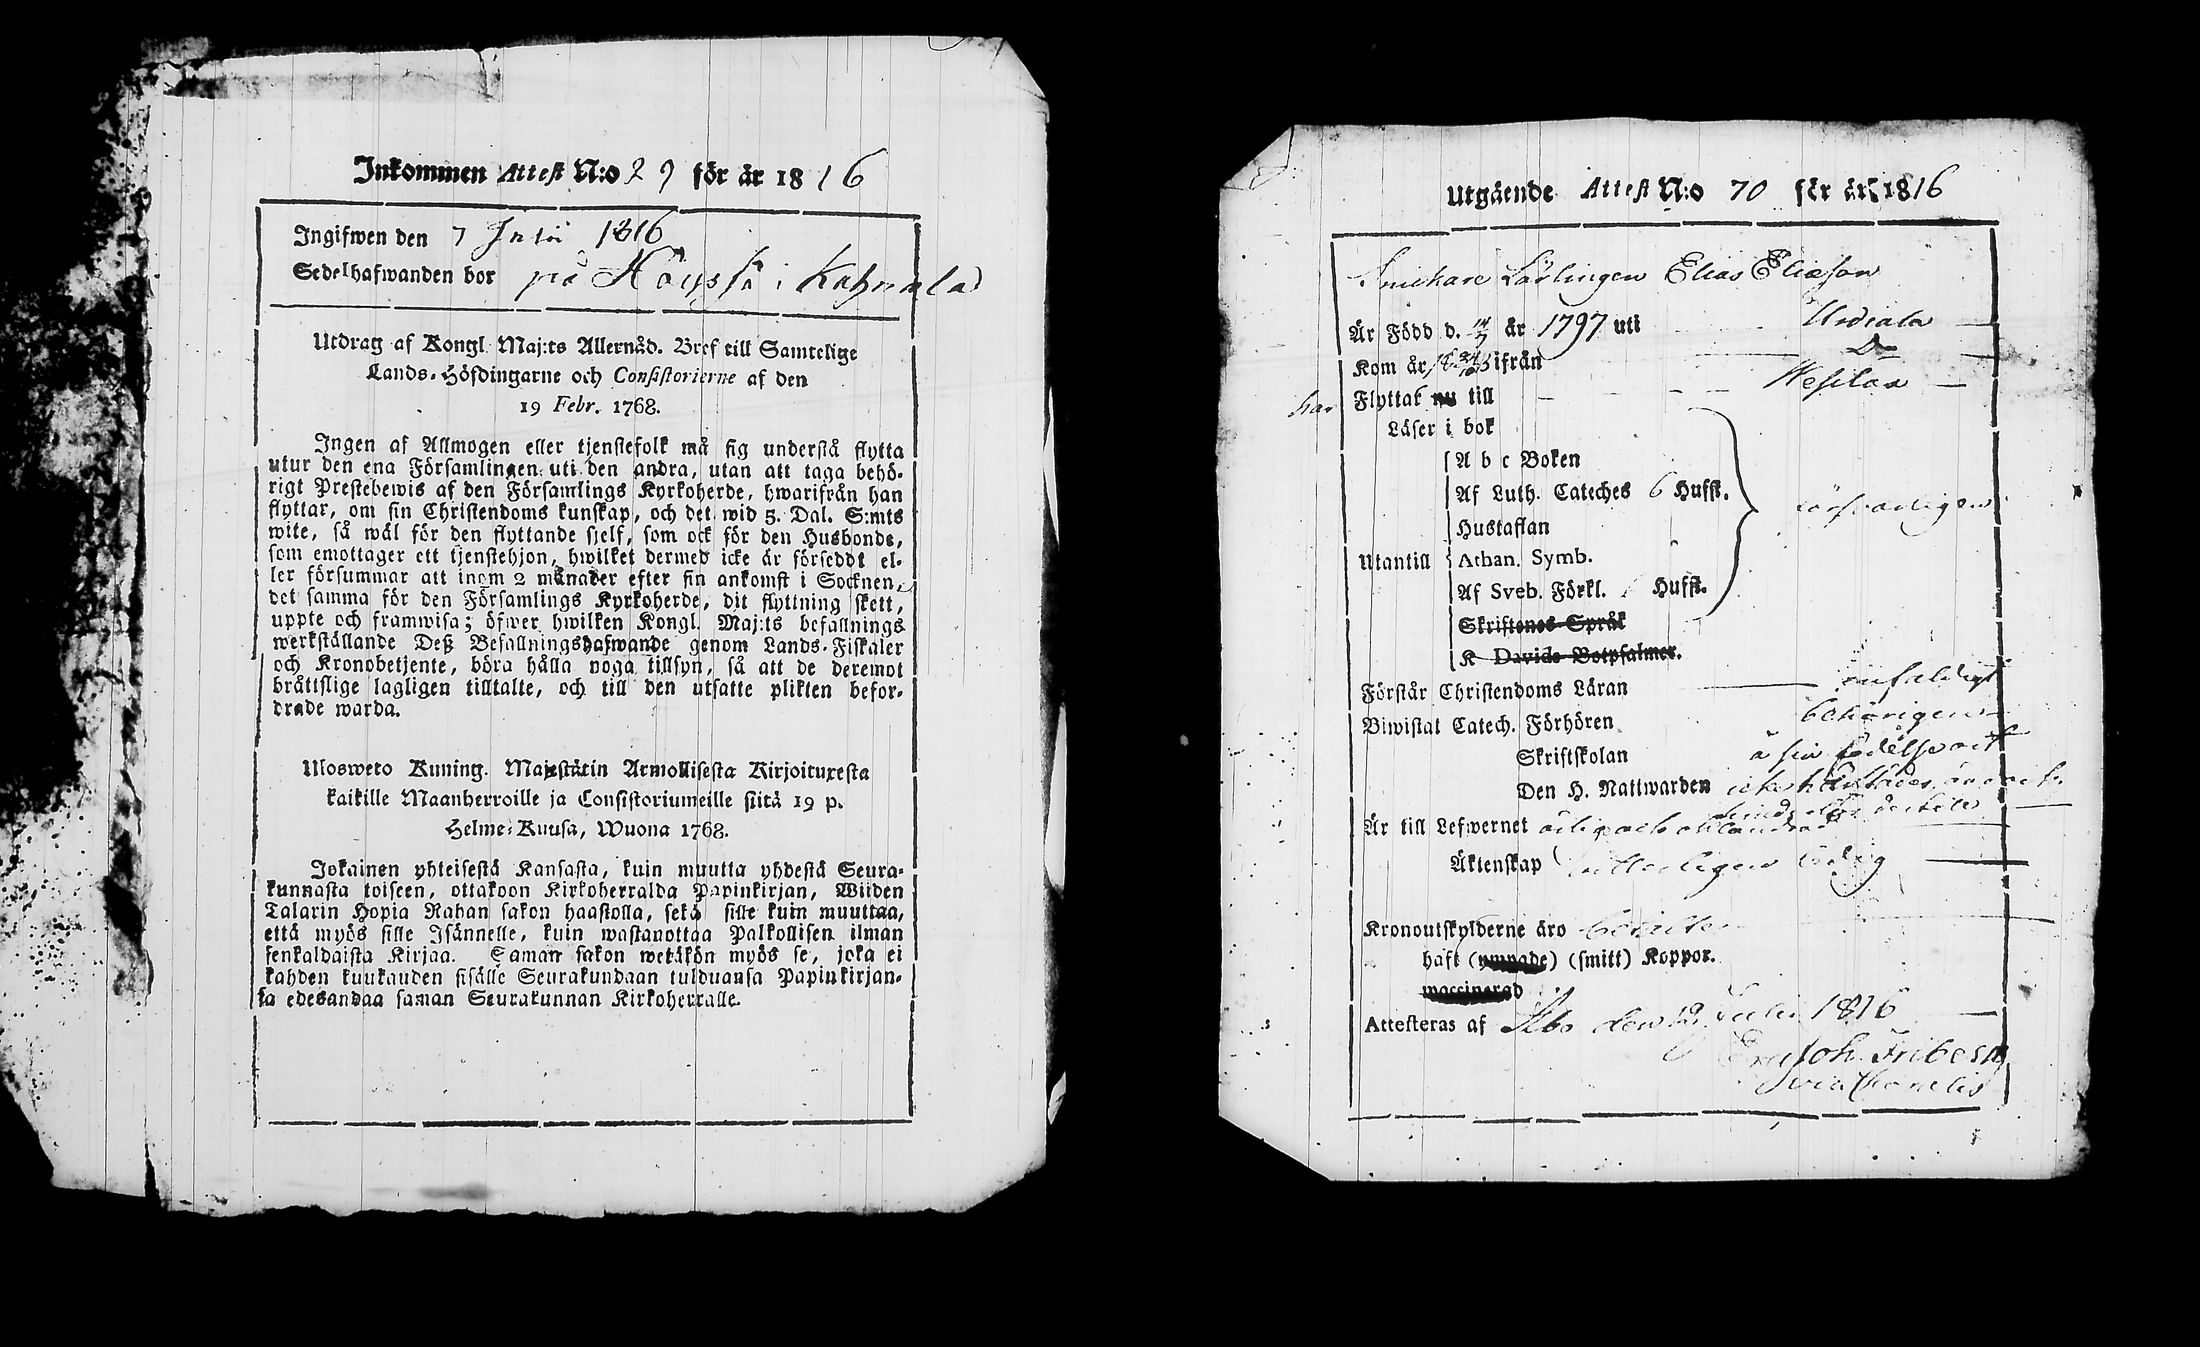 Inkommen Attest N:o 29 för år 1816
Ingifwen den 7 Julii 1816
Sedelhafwanden bor på Höyssä i Kahrnala
Utdrag af Kongl. Maj:ts Allernåd. Bref till Samtelige
Lands-Höfdingarne och Consistorierne af den
19 Febr. 1768.
Ingen af Allmogen eller tjenstefolk må sig understå flytta
utur den ena Församlingen uti den andra, utan att taga behö-
rigt Prestebewis af den Församlings Kyrkoherde, hwarifrån han
flyttar, om sin Christendoms kunskap, och det wid 5. Dal. S:mts
wite, så wäl för den flyttande sjelf, som ock för den Husbonde,
som emottager ett tjenstehjon, hwilket dermed icke är försedt el-
ler försummar att inom 2 månader efter sin ankomst i Socknen,
det samma för den Församlings Kyrkoherde, dit flyttning skett,
uppte och framwisa; öfwer hwilken Kongl. Maj:ts befallnings
werkställande Deß Befallningshafwande genom Lands-Fiskaler
och Kronobetjente, böra hålla noga tillsyn, så att de deremot
bråttslige lagligen tilltalte, och till den utsatte plikten befor-
drade warda.
Ulosweto Kuning. Majestätin Armollisesta Kirjoituxesta
kaikille Maanherroille ja Consistoriumeille siitä 19 p.
Helme-Kuusa, Wuona 1768.
Jokainen yhteisestä Kansasta, kuin muutta yhdestä Seura-
kunnasta toiseen, ottakoon Kirkoherralda Papinkirjan, Wiiden
Talarin Hopia Rahan sakon haastolla, sekä sille kuin muuttaa,
että myös sille Isännelle, kuin wastanottaa Palkollisen ilman
senkaldaista Kirjaa. Saman sakon wetäkön myös se, joka ei
kahden kuukauden sisälle Seurakundaan tulduansa Papinkirjan-
sa edesandaa saman Seurakunnan Kirkoherralle.
Utgående Attest N:o 70 för år 1816
Snickare Lärlingen Elias Eliæson
Är Född d. 14/7 år 1797 uti Urdiala
Kom år ifrån Do
har Flyttat nu till Wesilax
Läser i bok
A b c Boken
Af Luth. Cateches 6 Hufst.
Hustaflan
Utantill Athan. Symb. försvarligen
Af Sveb. Förkl. Hufst.
Skriftenes Språk
K Davids Botpsalmer.
Förstår Christendoms Läran enfaldigt
Biwistat Catech. Förhören behörigen
Skriftskolan å sin födelseort
Den H. Nattwarden icke härstädes
Är till Lefwernet ärlig och
Äktenskap ledig
Kronoutskylderne äro betalte
haft (ympade) (smitt) Koppor.
waccinerad
Attesteras af Åbo den 19 Julii 1816
Er. Joh. Friberg